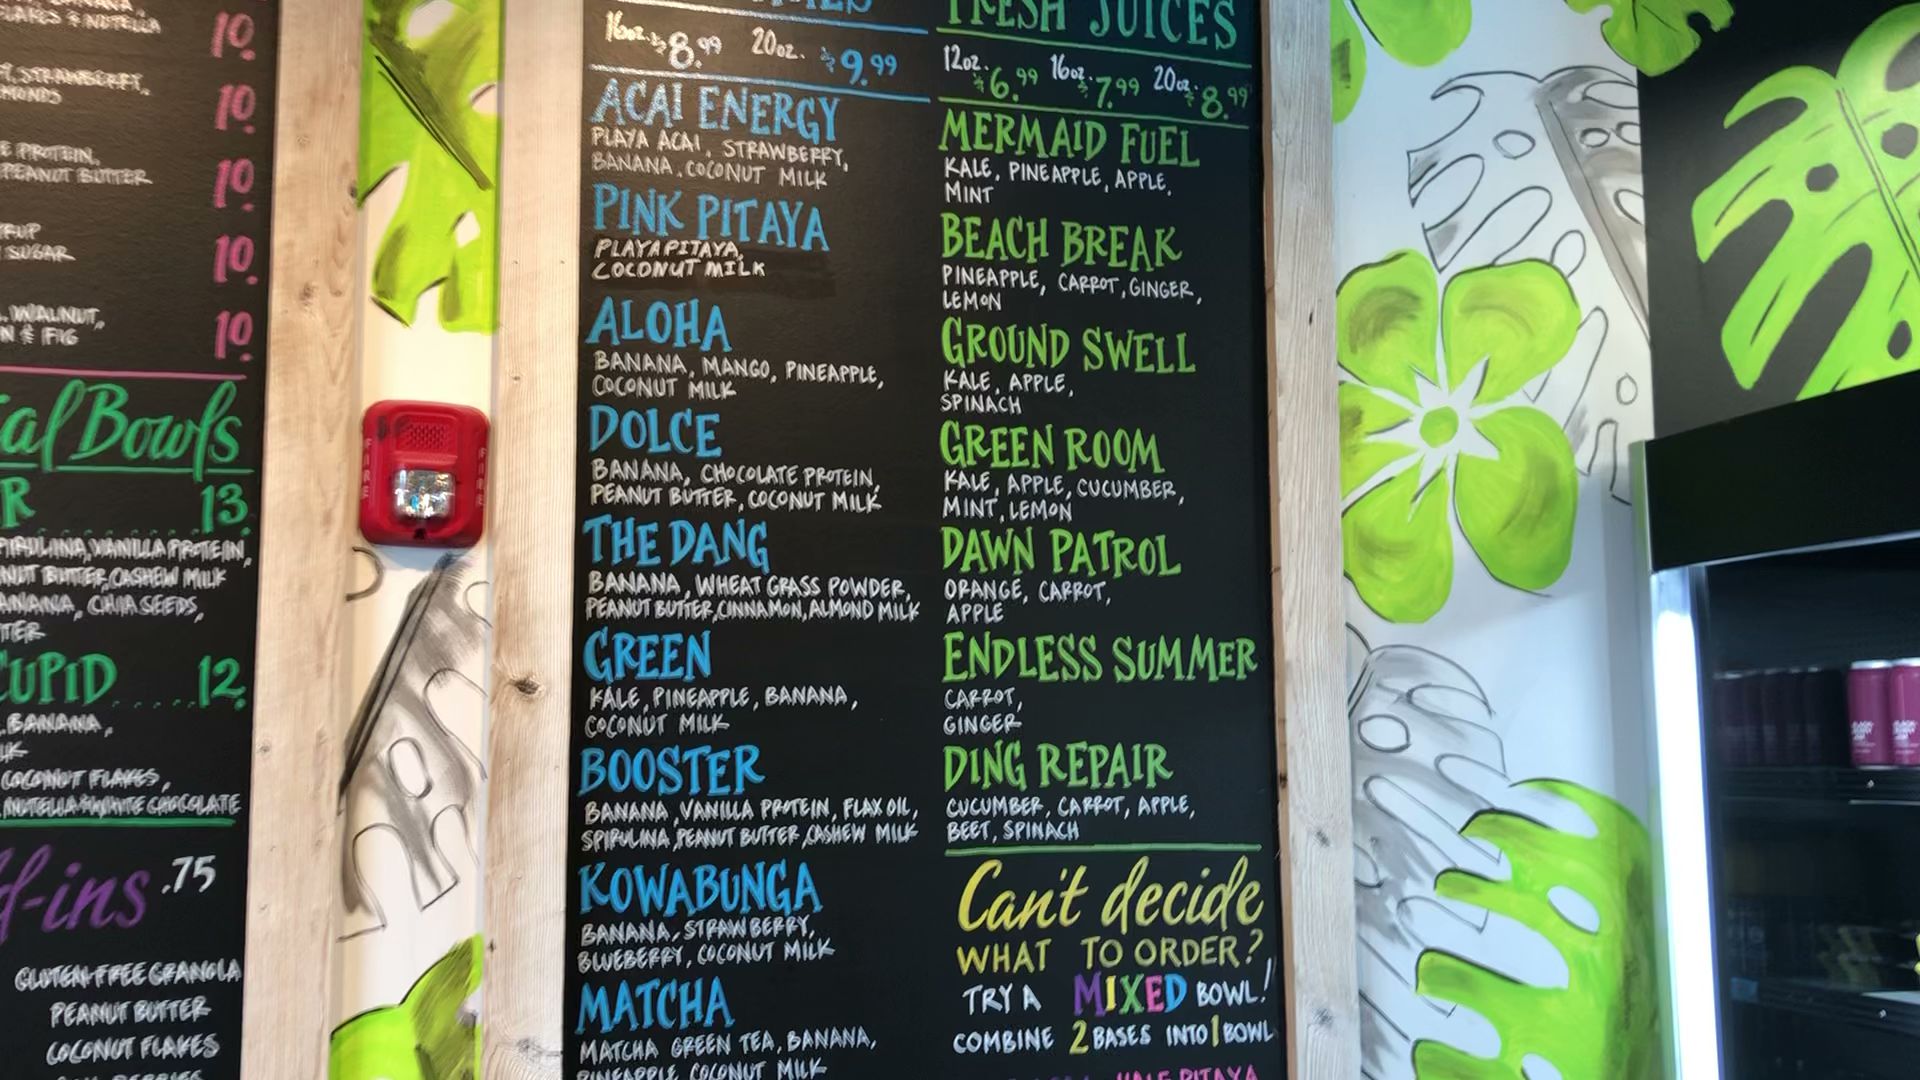 10.
& NUTELLA
STRAWBERRY,
10.
PROTEIN,
PEANUT BUTTER
10.
SUGAR
10.
WALNUT,
& FIG
10.
Bowls
13.
SPIRULINA, VANILLA PROTEIN,
BUTTER, CASHEW MILK
BANANA, CHIA SEEDS,
CUPID.....12.
BANANA,
COCONUT FLAKES,
NUTELLA + WHITE CHOCOLATE
.75
GLUTEN-FREE GRANOLA
PEANUT BUTTER
COCONUT FLAKES
FIRE
FIRE
16oz. $8.99 20oz. $9.99
ACAI ENERGY
PLAYA ACAI, STRAWBERRY,
BANANA, COCONUT MILK
PINK PITAYA
PLAYA PITAYA,
COCONUT MILK
ALOHA
BANANA, MANGO, PINEAPPLE,
COCONUT MILK
DOLCE
BANANA, CHOCOLATE PROTEIN,
PEANUT BUTTER, COCONUT MILK
THE DANG
BANANA, WHEAT GRASS POWDER,
PEANUT BUTTER, CINNAMON, ALMOND MILK
GREEN
KALE, PINEAPPLE, BANANA,
COCONUT MILK
BOOSTER
BANANA, VANILLA PROTEIN, FLAX OIL,
SPIRULINA, PEANUT BUTTER, CASHEW MILK
KOWABUNGA
BANANA, STRAWBERRY,
BLUEBERRY, COCONUT MILK
MATCHA
MATCHA GREEN TEA, BANANA,
PINEAPPLE, COCONUT MILK
FRESH JUICES
12oz. $6.99 16oz. $7.99 20oz. $8.99
MERMAID FUEL
KALE, PINEAPPLE, APPLE,
MINT
BEACH BREAK
PINEAPPLE, CARROT, GINGER,
LEMON
GROUND SWELL
KALE, APPLE,
SPINACH
GREEN ROOM
KALE, APPLE, CUCUMBER,
MINT, LEMON
DAWN PATROL
ORANGE, CARROT,
APPLE
ENDLESS SUMMER
CARROT,
GINGER
DING REPAIR
CUCUMBER, CARROT, APPLE,
BEET, SPINACH
Can't decide
WHAT TO ORDER?
TRY A MIXED BOWL!
COMBINE 2 BASES INTO 1 BOWL
HALF PITAYA